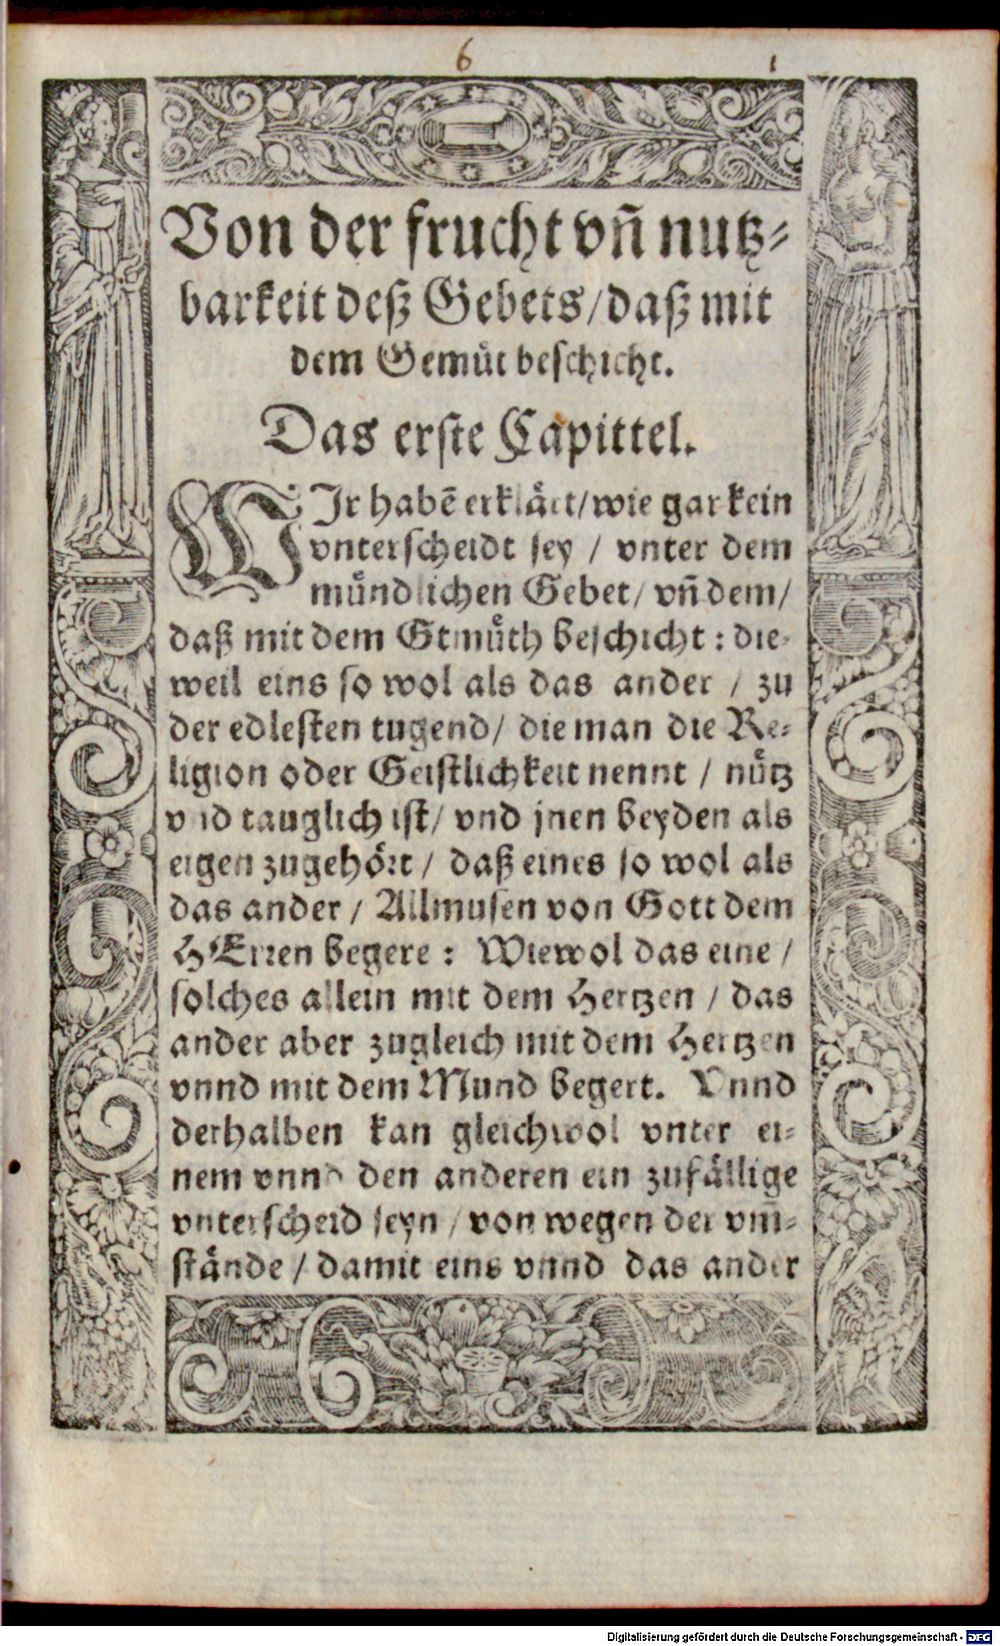 6 1
Von der frucht vn̄ nutz⸗
barkeit deß Gebets/ daß mit
dem Gemuͤt beschicht.
Das erste Capittel.
WJr habē erklaͤrt/ wie gar kein
vnterscheidt sey / vnter dem
muͤndlichen Gebet/ vn̄ dem/
daß mit dem Gemuͤth beschicht: die⸗
weil eins so wol als das ander / zu
der edlesten tugend/ die man die Re⸗
ligion oder Geistlichkeit nennt / nuͤtz
vnd tauglich ist/ vnd jnen beyden als
eigen zugehoͤrt / daß eines so wol als
das ander / Allmusen von Gott dem
HErren begere: Wiewol das eine /
solches allein mit dem Hertzen / das
ander aber zugleich mit dem Hertzen
vnnd mit dem Mund begert. Vnnd
derhalben kan gleichwol vnter ei⸗
nem vnnd den anderen ein zufaͤllige
vnterscheid seyn / von wegen der vm̄⸗
staͤnde / damit eins vnnd das ander
Digitalisierung gefördert durch die Deutsche Forschungsgemeinschaft - DFG